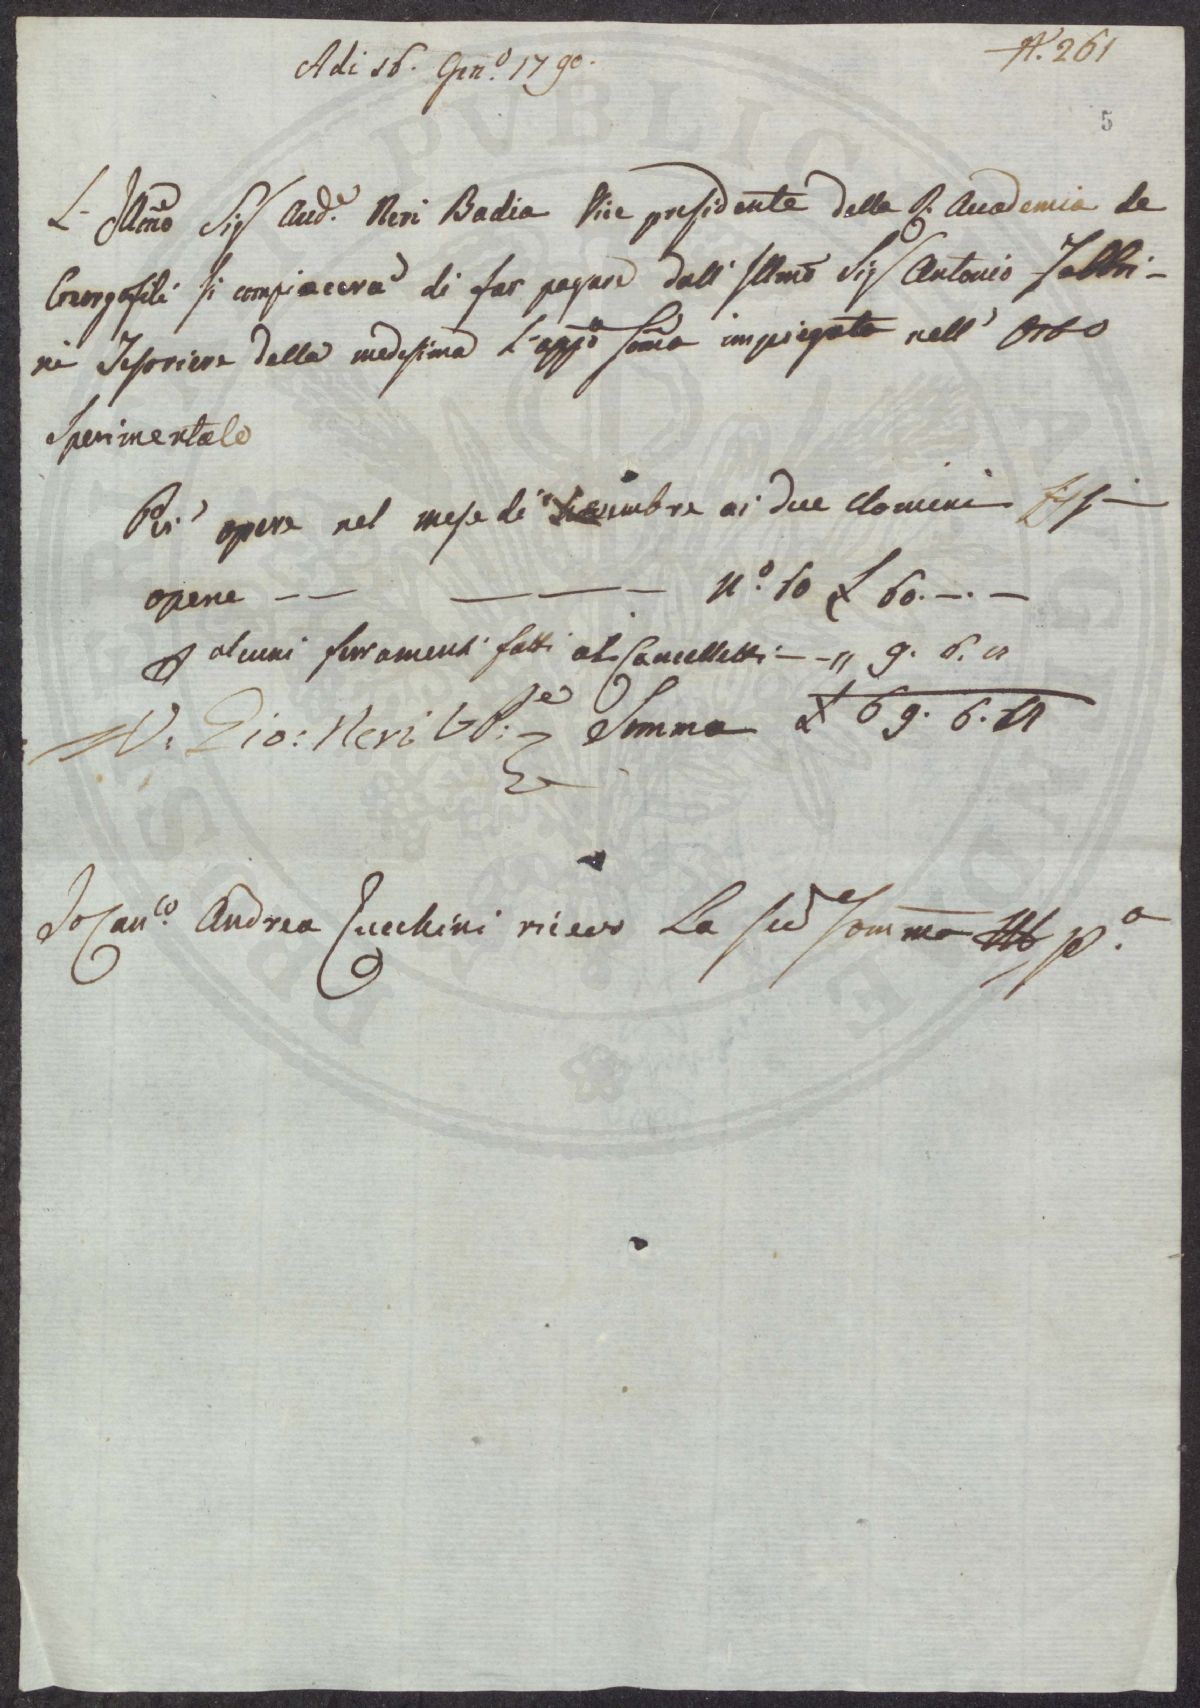 Adi 16. Gen.º 1790.
N. 261
5
L'Illmo Sig Aud.e Neri Badia Vice presidente della R. Accademia de
Georgofili si compiacerà di far pagare dall' Illmo Sig Antonio Fabbri-
ni Tesoriere della medesima L'appo Soma impiegata nell' Orto
Sperimentale
Per opere nel mese di Dicembre ai due Uomini fissi
opere -- --- N.º 60 £ 60.-.-
P alcuni ferramenti fatti al Cancelletti -- " 9. 6. "
V. Gio: Neri VP:e Somma £ 69. 6. "
Io Fran.co Andrea Zucchini ricevo La sud Somma Mo p.a